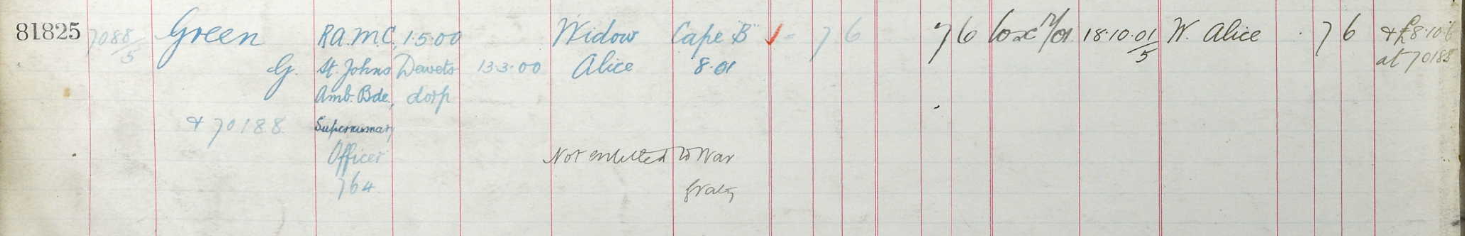 81825 7088/5 Green R.A.M.C. 15.00 Widow Cape "B" 7 6 7 6 18.10.01/5 W. Alice 7 6 + £8.10.6
G. St. Johns Dewets 13.3.00 Alice 8.01 at 70188
Amb. Bde, dorp
+ 70188 Supernumary
Officer Not entitled to War
764 Graty